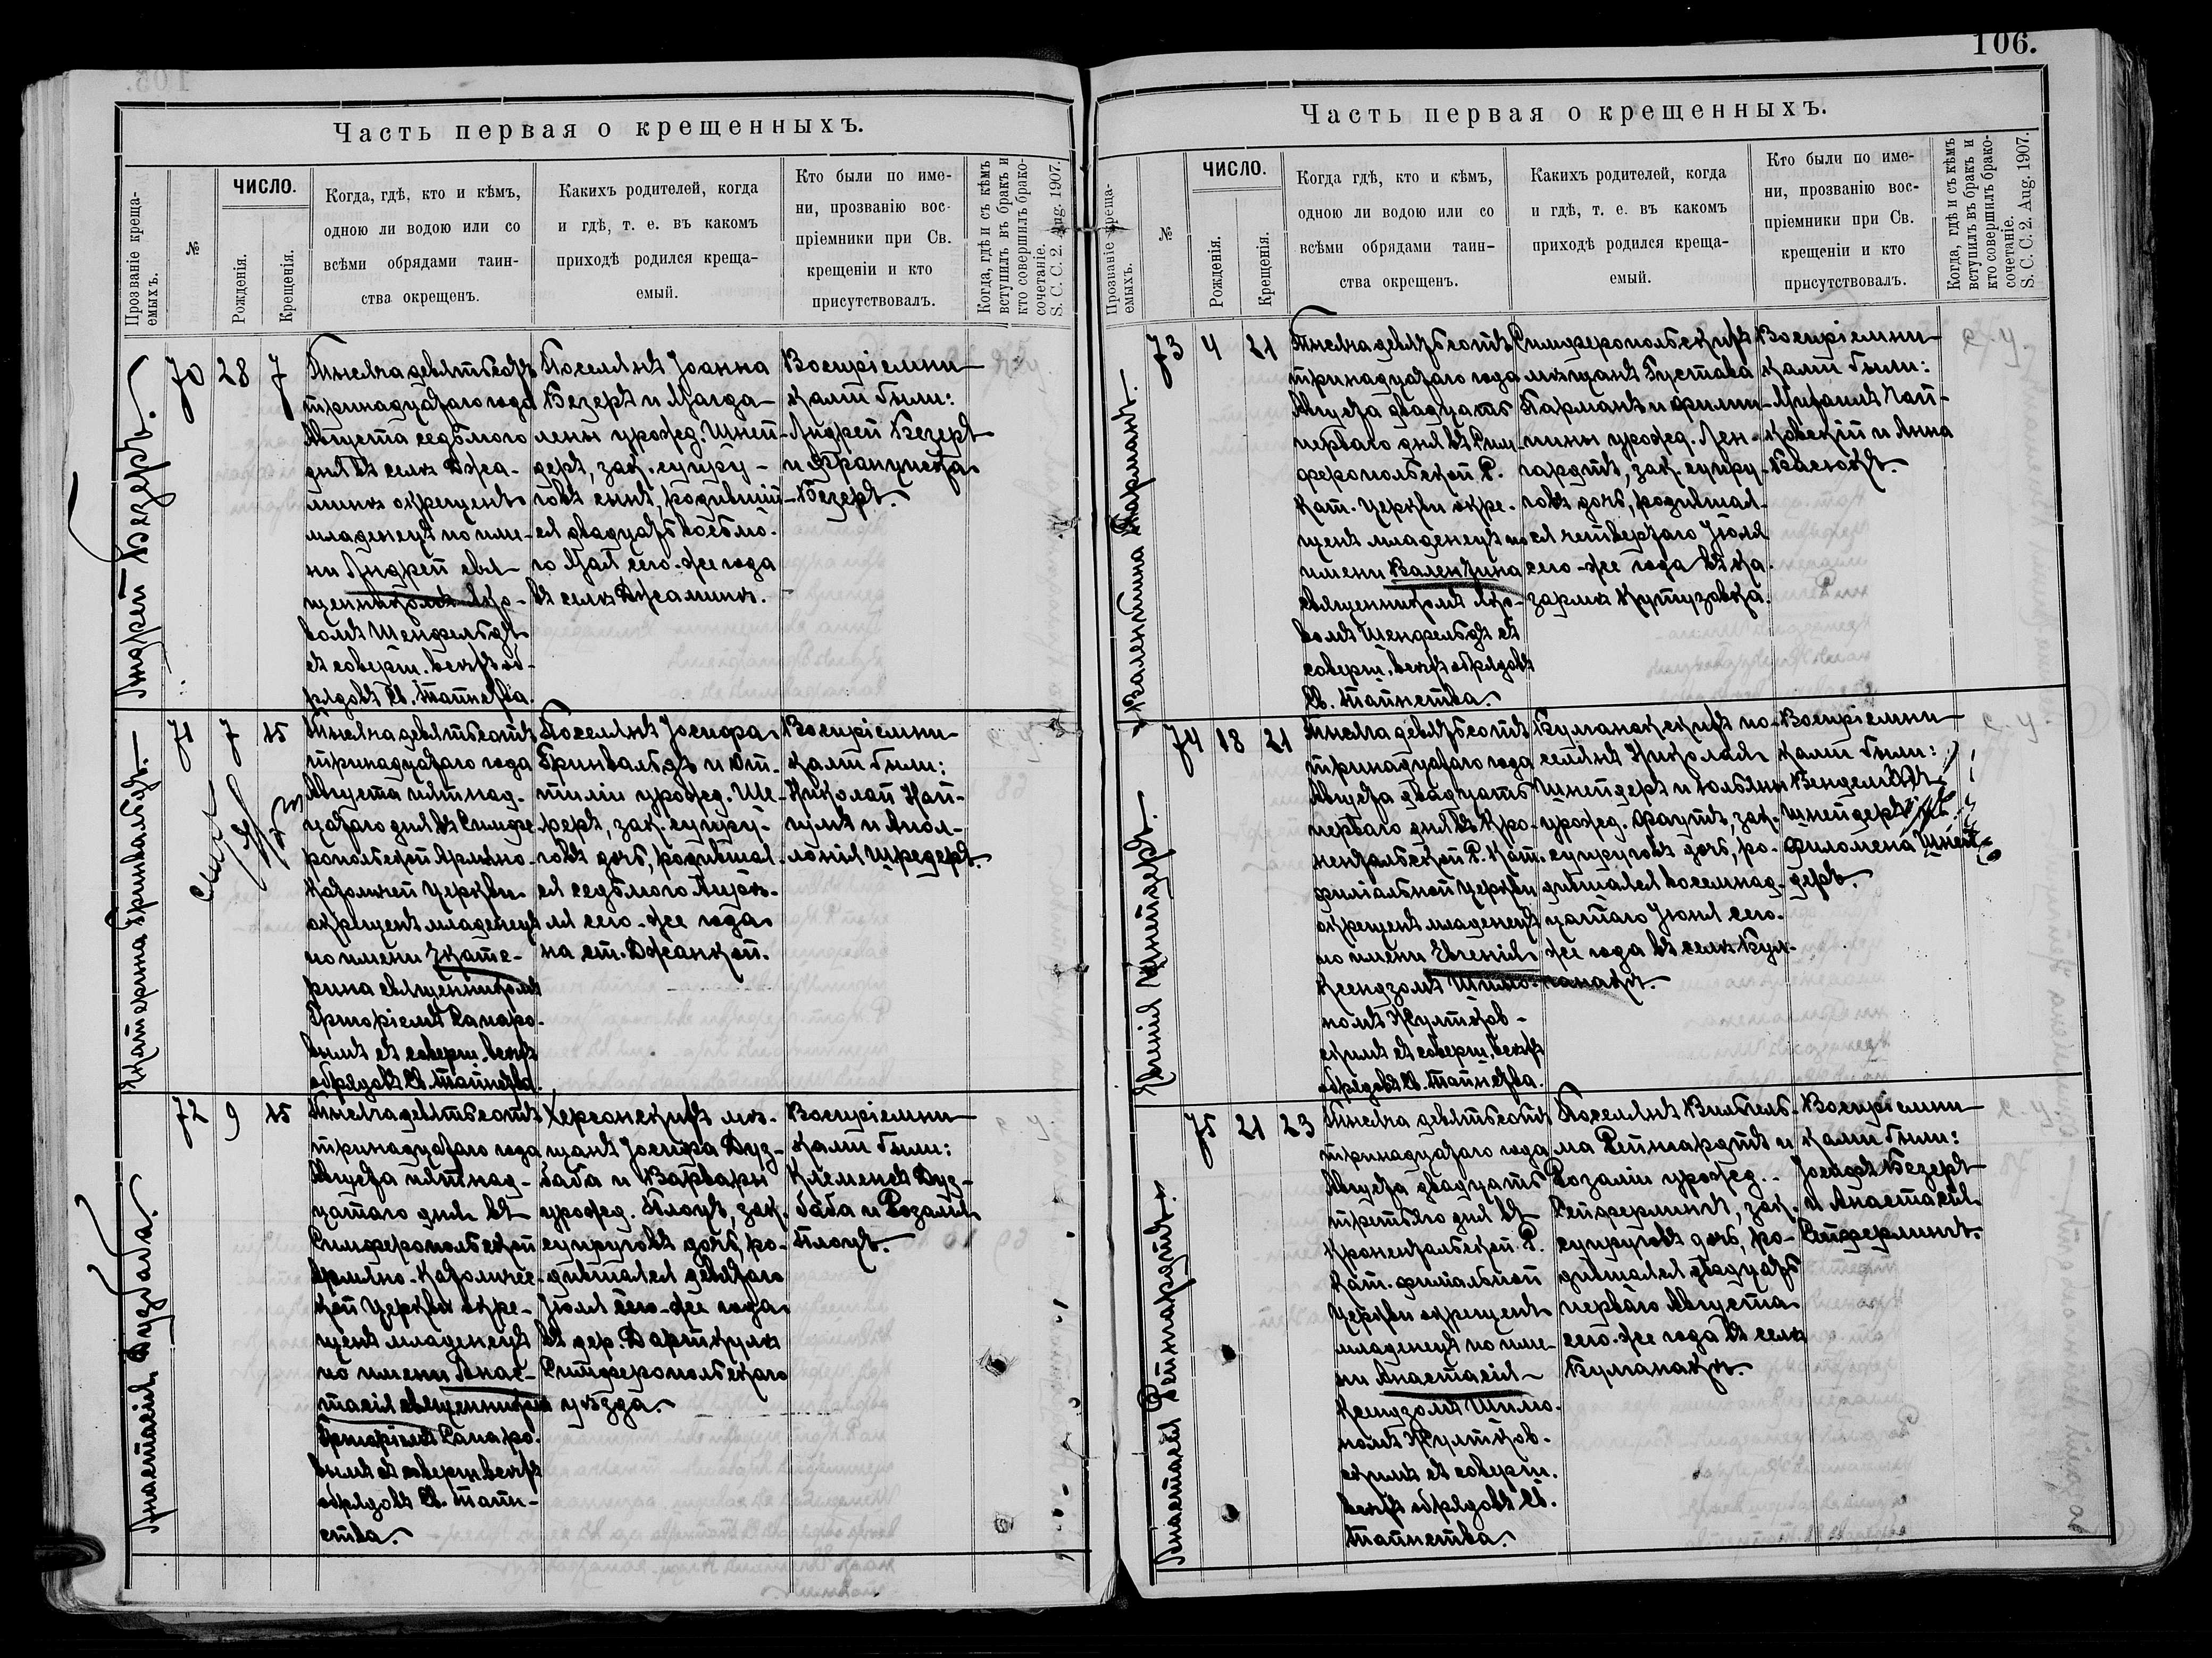 106.
Часть первая о крещенныхъ.
Прозваніе креща-
емыхъ.
№
ЧИСЛО.
Рожденія.
Крещенія.
Когда, гдѣ, кто и кѣмъ,
одною ли водою или со
всѣми обрядами таин-
ства окрещенъ.
Какихъ родителей, когда
и гдѣ, т. е. въ какомъ
приходѣ родился креща-
емый.
Кто были по име-
ни, прозванію вос-
пріемники при Св.
крещеніи и кто
присутствовалъ.
Когда, гдѣ и съ кѣмъ
вступилъ въ бракъ и
кто совершилъ брако-
сочетаніе.
S. C. C. 2. Aug. 1907.
Андрей Безертъ.
70 28 7
Тысяча девятьсотъ
тринадцатаго года
Августа седьмого
дня въ селѣ Джа-
минѣ окрещенъ
младенецъ по име-
ни Андрей свя-
щенникомъ Яко-
вомъ Шенфельдъ
съ соверш. всѣхъ об-
рядовъ Св. Таинства.
Поселянъ Іоанна
Безертъ и Магда-
лены урожд. Шней-
деръ, зак. супру-
говъ сынъ, родившій-
ся двадцать восьмо-
го Мая сего-же года
въ селѣ Джаминъ.
Воспріемни-
ками были:
Андрей Безертъ
и Франциска
Безертъ.
Екатерина Гринвальдъ.
71 7 15
Тысяча девятьсотъ
тринадцатаго года
Августа пятнад-
цатаго дня въ Симфе-
ропольской Армяно-
Католичей церкви
окрещенъ младенецъ
по имени Екате-
рина священникомъ
Григоріемъ Капаро-
вымъ съ соверш. всѣхъ
обрядовъ Св. Таинства.
Поселянъ Іосифа
Гринвальдъ и От-
тиліи урожд. Ше-
реръ, зак. супру-
говъ дочь, родившая-
ся седьмого
сего-же года
на ст. Джанкой.
Воспріемни-
ками были:
Николай Кай-
цумъ и Апол-
лонія Шредеръ.
Анастасія Дудбаба.
72 9 15
Тысяча девятьсотъ
тринадцатаго года
Августа пятнад-
цатаго дня въ
Симферопольской
Армяно-Католичес-
кой церкви окре-
щенъ младенецъ
по имени Анас-
тасія священникомъ
Григоріемъ Капаро-
вымъ съ соверш. всѣхъ
обрядовъ Св. Таин-
ства.
Херсонскихъ мѣ-
щанъ Іосифа Дуд-
баба и Варвары
урожд. Плоцъ, зак.
супруговъ дочь, ро-
дившаяся девятаго
Іюля сего-же года
въ дер. Барткулъ
Симферопольскаго
уѣзда.
Воспріемни-
ками были:
Клеменсъ Дуд-
баба и Розалія
Плоцъ.
Часть первая о крещенныхъ.
Прозваніе креща-
емыхъ.
№
ЧИСЛО.
Рожденія.
Крещенія.
Когда гдѣ, кто и кѣмъ,
одною ли водою или со
всѣми обрядами таин-
ства окрещенъ.
Какихъ родителей, когда
и гдѣ, т. е. въ какомъ
приходѣ родился креща-
емый.
Кто были по име-
ни, прозванію вос-
пріемники при Св.
крещеніи и кто
присутствовалъ.
Когда, гдѣ и съ кѣмъ
вступилъ въ бракъ и
кто совершилъ брако-
сочетаніе.
S. C. C. 2. Aug. 1907.
Валентина Карманъ.
73 4 21
Тысяча девятьсотъ
тринадцатаго года
Августа двадцать
перваго дня въ Сим-
феропольской Р.
Кат. церкви окре-
щенъ младенецъ по
имени Валентина
священникомъ Яко-
вомъ Шенфельдъ съ
соверш. всѣхъ обрядовъ
Св. Таинства.
Симферопольскихъ
мѣщанъ Густава
Карманъ и Филип-
пины урожд. Лен-
гардтъ, зак. супру-
говъ дочь, родившая-
ся четвертаго Іюля
сего-же года въ ка-
зармѣ Кутузовка.
Воспріемни-
ками были:
и Анна
Евгенія Шнейдеръ.
74 18 21
Тысяча девятьсотъ
тринадцатаго года
Августа двадцать
перваго дня въ Кро-
нентальской Р. Кат.
филіальной церкви
окрещенъ младенецъ
по имени Евгенія
Ксендзомъ Шимо-
номъ Жултков-
скимъ съ соверш. всѣхъ
обрядовъ Св. Таинства.
Булганакскихъ по-
селянъ Николая
Шнейдеръ и Юльяны
урожд. Фаутъ, зак.
супруговъ дочь, ро-
дившаяся восемнад-
цатаго Іюня сего-
же года въ селѣ Бул-
ганакъ.
Воспріемни-
ками были:
Венделинъ
Шнейдеръ и
Филомена Шней-
деръ.
Анастасія Рейнгардтъ.
75 21 23
Тысяча девятьсотъ
тринадцатаго года
Августа двадцать
третьяго дня въ
Кронентальской Р.
Кат. филіальной
церкви окрещенъ
младенецъ по име-
ни Анастасія
Ксендзомъ Шимо-
номъ Жултков-
скимъ съ соверш.
всѣхъ обрядовъ Св.
Таинства.
Поселянъ Вильгель-
ма Рейнгардтъ и
Розаліи урожд.
Сейферлингъ, зак.
супруговъ дочь, ро-
дившаяся двадцать
перваго Августа
сего-же года въ селѣ
Булганакъ.
Воспріемни-
ками были:
Іосифъ Безертъ
и Анастасія
Сейферлингъ.